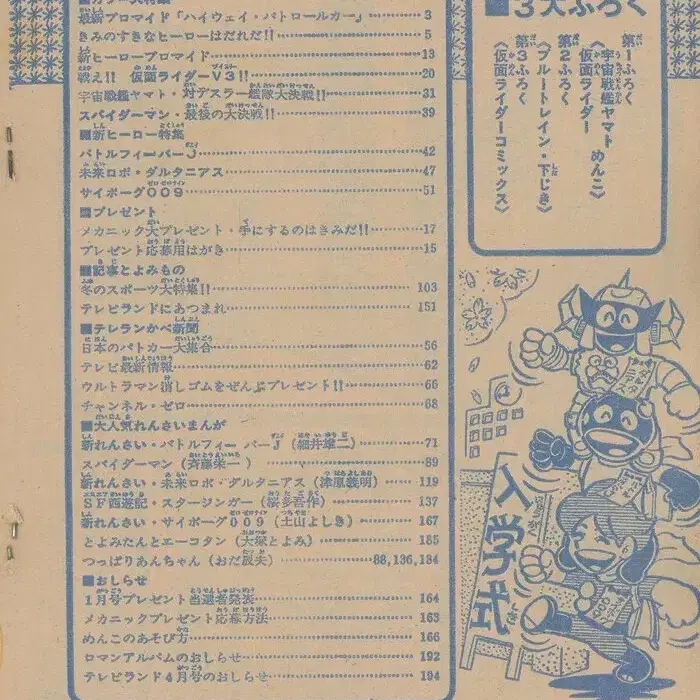 最新ブロマイド「ハイウェイ・パトロールカー」 3
きみのすきなヒーローはだれだ!! 5
新ヒーローブロマイド 13
戦え!! 仮面ライダーV3!! 20
宇宙戦艦ヤマト・対デスラー艦隊大決戦!! 31
スパイダーマン・最後の大決戦!! 39
■新ヒーロー特集
バトルフィーバーJ 42
未来ロボ・ダルタニアス 47
サイボーグ009 51
■プレゼント
メカニック大プレゼント・手にするのはきみだ!! 17
プレゼント応募用はがき 15
■記事とよみもの
冬のスポーツ大特集!! 103
テレビランドにあつまれ 151
■テレランかべ新聞
日本のパトカー大集合 56
テレビ最新情報 62
ウルトラマン消しゴムをぜんぶプレゼント!! 66
チャンネル・ゼロ 68
■大人気れんさいまんが
新れんさい・バトルフィーバーJ(細井雄二) 71
スパイダーマン(斉藤栄一) 89
新れんさい・未来ロボ・ダルタニアス(津原義明) 119
SF西遊記・スタージンガー(桜多吾作) 137
新れんさい・サイボーグ009(土山よしき) 167
とよみたんとエーコタン(大塚とよみ) 185
つっぱりあんちゃん(おだ辰夫) 88,136,184
■おしらせ
1月号プレゼント当選者発表 164
メカニックプレゼント応募方法 163
めんこのあそび方 166
ロマンアルバムのおしらせ 192
テレビランド4月号のおしらせ 194
■3大ふろく
第1ふろく
〈宇宙戦艦ヤマト めんこ
仮面ライダー〉
第2ふろく
〈ブルートレイン・下じき〉
第3ふろく
〈仮面ライダーコミックス〉
入学式